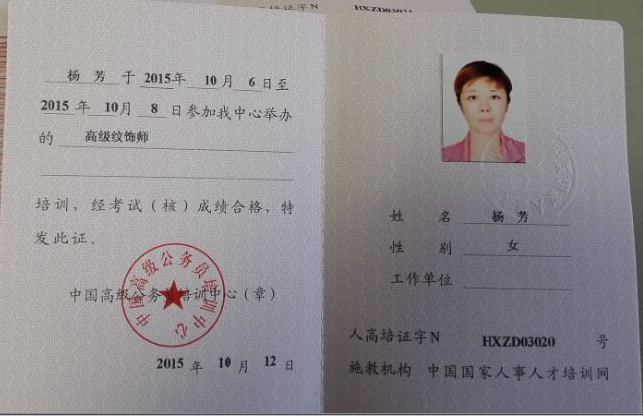 人高培证字N HXZD0302
杨 芳 于 2015年 10 月 6 日至
2015 年 10月 8 日参加我中心举办
的 高级纹饰师
培训，经考试（核）成绩合格，特
发此证。
中国高级公务员培训中心（章）
中国高级公务员培训中心
2015 年 10 月 12 日
姓 名 杨 芳
性 别 女
工作单位
人高培证字N HXZD03020 号
施教机构 中国国家人事人才培训网